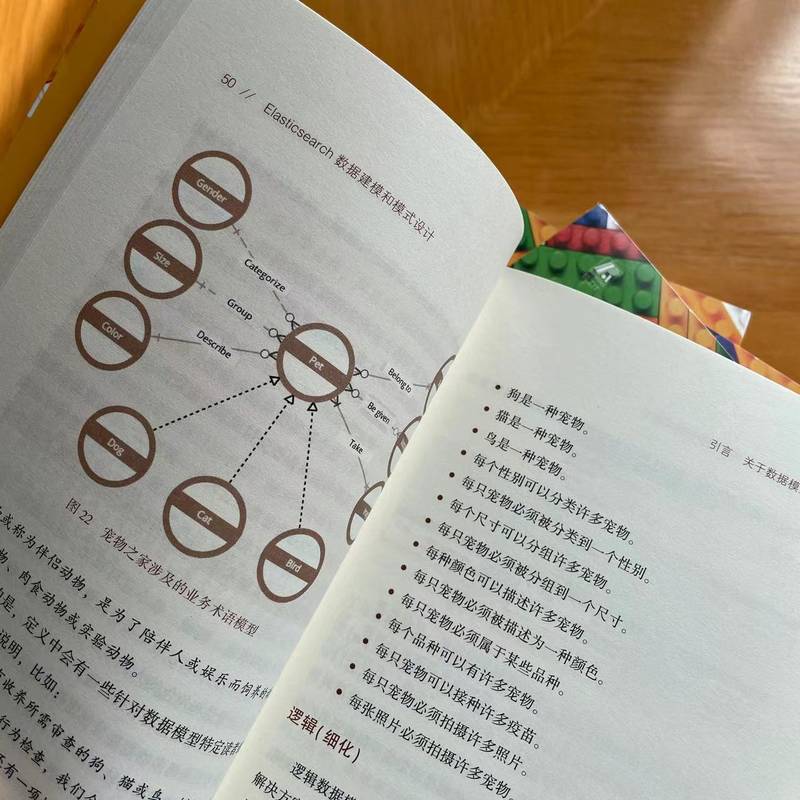 50 // Elasticsearch 数据建模和模式设计
Gender
Size
Color
Categorize
Group
Describe
Pet
Belong to
Be given
Take
Dog
Cat
Bird
图 22 宠物之家涉及的业务术语模型
或称为伴侣动物，是为了陪伴人或娱乐而饲养的
物、肉食动物或实验动物。
是，定义中会有一些针对数据模型特定读者
说明，比如：
收养所需审查的狗、猫或鸟
行为检查，我们
还有一项
引言 关于数据模
• 狗是一种宠物。
• 猫是一种宠物。
• 鸟是一种宠物。
• 每个性别可以分类许多宠物。
• 每只宠物必须被分类到一个性别。
• 每个尺寸可以分组许多宠物。
• 每只宠物必须被分组到一个尺寸。
• 每种颜色可以描述许多宠物。
• 每只宠物必须被描述为一种颜色。
• 每只宠物必须属于某些品种。
• 每个品种可以有许多宠物。
• 每只宠物可以接种许多疫苗。
• 每只宠物必须拍摄许多照片。
• 每张照片必须拍摄许多宠物。
逻辑（细化）
逻辑数据模
解决方